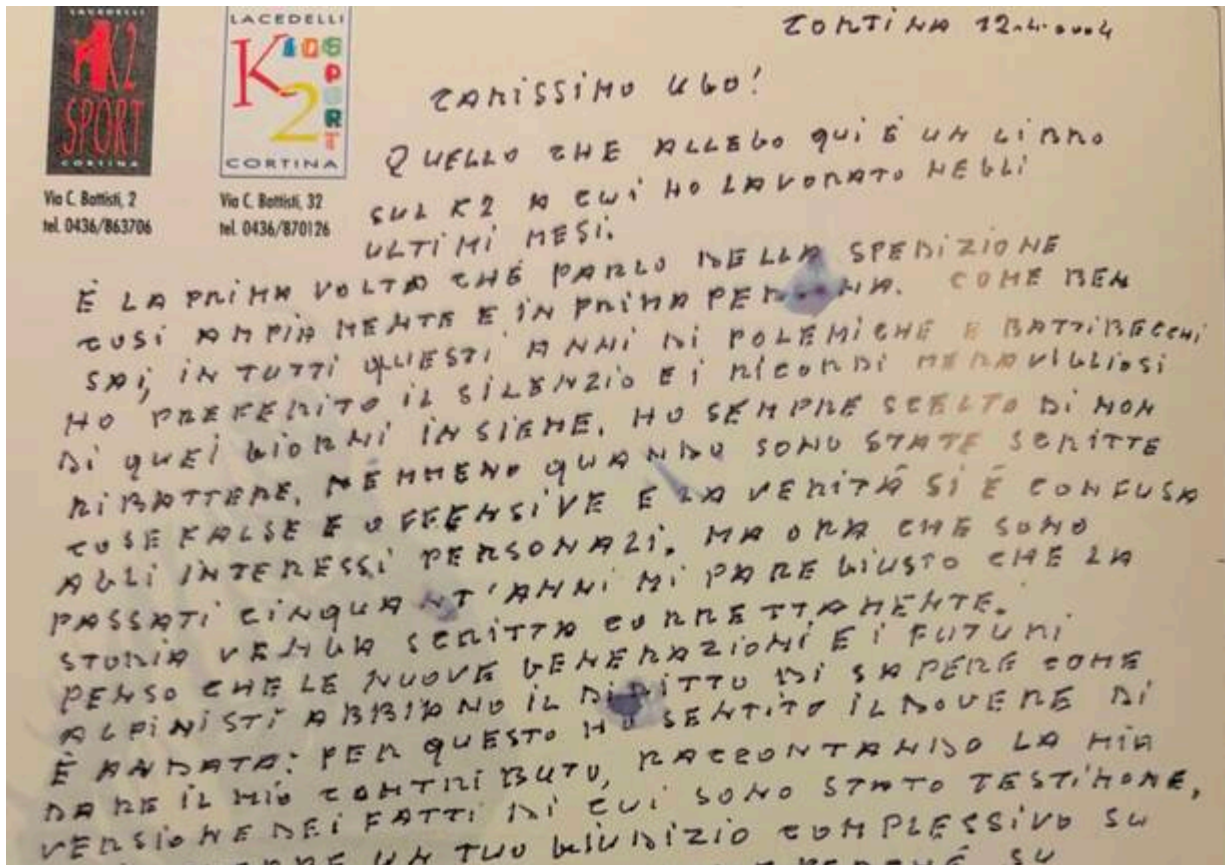 LACEDELLI
K2
SPORT
CORTINA
Via C. Battisti, 2
tel. 0436/863706
LACEDELLI
K2
KIDS
SPORT
CORTINA
Via C. Battisti, 32
tel. 0436/870126
CORTINA 12.4.2004
CARISSIMO UGO!
QUELLO CHE ALLEGO QUI È UN LIBRO
SUL K2 A CUI HO LAVORATO NEGLI
ULTIMI MESI.
È LA PRIMA VOLTA CHE PARLO DELLA SPEDIZIONE
COSI AMPIAMENTE E IN PRIMA PERSONA. COME BEN
SAI, IN TUTTI QUESTI ANNI DI POLEMICHE E BATTIBECCHI
HO PREFERITO IL SILENZIO E I RICORDI MERAVIGLIOSI
DI QUEI GIORNI INSIEME. HO SEMPRE SCELTO DI NON
RIBATTERE, NEMMENO QUANDO SONO STATE SCRITTE
COSE FALSE E OFFENSIVE E LA VERITÁ SI É CONFUSA
AGLI INTERESSI PERSONALI. MA ORA CHE SONO
PASSATI CINQUANT'ANNI MI PARE GIUSTO CHE LA
STORIA VENGA SCRITTA CORRETTAMENTE.
PENSO CHE LE NUOVE GENERAZIONI E I FUTURI
ALPINISTI ABBIANO IL DIRITTO DI SAPERE COME
È ANDATA: PER QUESTO HO SENTITO IL DOVERE DI
DARE IL MIO CONTRIBUTO, RACCONTANDO LA MIA
VERSIONE DEI FATTI DI CUI SONO STATO TESTIMONE,
UN TUO GIUDIZIO COMPLESSIVO SU
SU